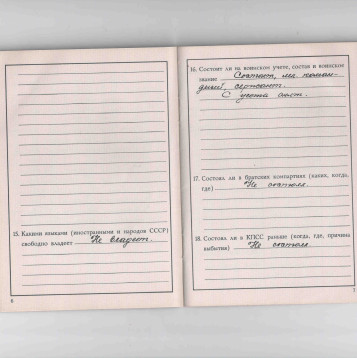 15. Какими языками (иностранными и народов СССР)
свободно владеет Не владеет.
8
16. Состоит ли на воинском учете, состав и воинское
звание Состоит, мл. коман-
дный, сержант.
С учета снят.
17. Состоял ли в братских компартиях (каких, когда,
где) Не состоял.
18. Состоял ли в КПСС раньше (когда, где, причина
выбытия) Не состоял.